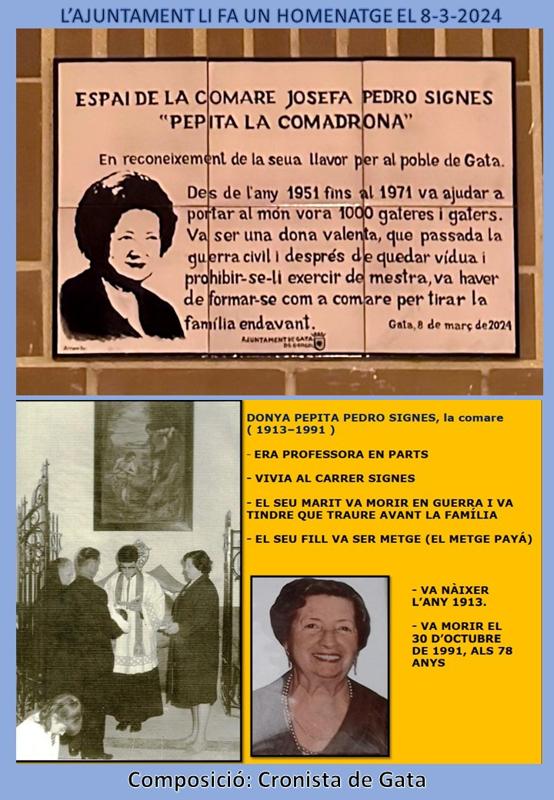 L'AJUNTAMENT LI FA UN HOMENATGE EL 8-3-2024
ESPAI DE LA COMARE JOSEFA PEDRO SIGNES
"PEPITA LA COMADRONA"
En reconeixement de la seua llavor per al poble de Gata.
Des de l'any 1951 fins al 1971 va ajudar a
portar al món vora 1000 gateres i gaters.
Va ser una dona valenta, que passada la
guerra civil i després de quedar vídua i
prohibir-se-li exercir de mestra, va haver
de formar-se com a comare per tirar la
família endavant.
Gata, 8 de març de 2024
AJUNTAMENT DE GATA
DE GORGOS
DONYA PEPITA PEDRO SIGNES, la comare
( 1913–1991 )
- ERA PROFESSORA EN PARTS
- VIVIA AL CARRER SIGNES
- EL SEU MARIT VA MORIR EN GUERRA I VA
TINDRE QUE TRAURE AVANT LA FAMÍLIA
- EL SEU FILL VA SER METGE (EL METGE PAYÁ)
- VA NÀIXER
L'ANY 1913.
- VA MORIR EL
30 D'OCTUBRE
DE 1991, ALS 78
ANYS
Composició: Cronista de Gata